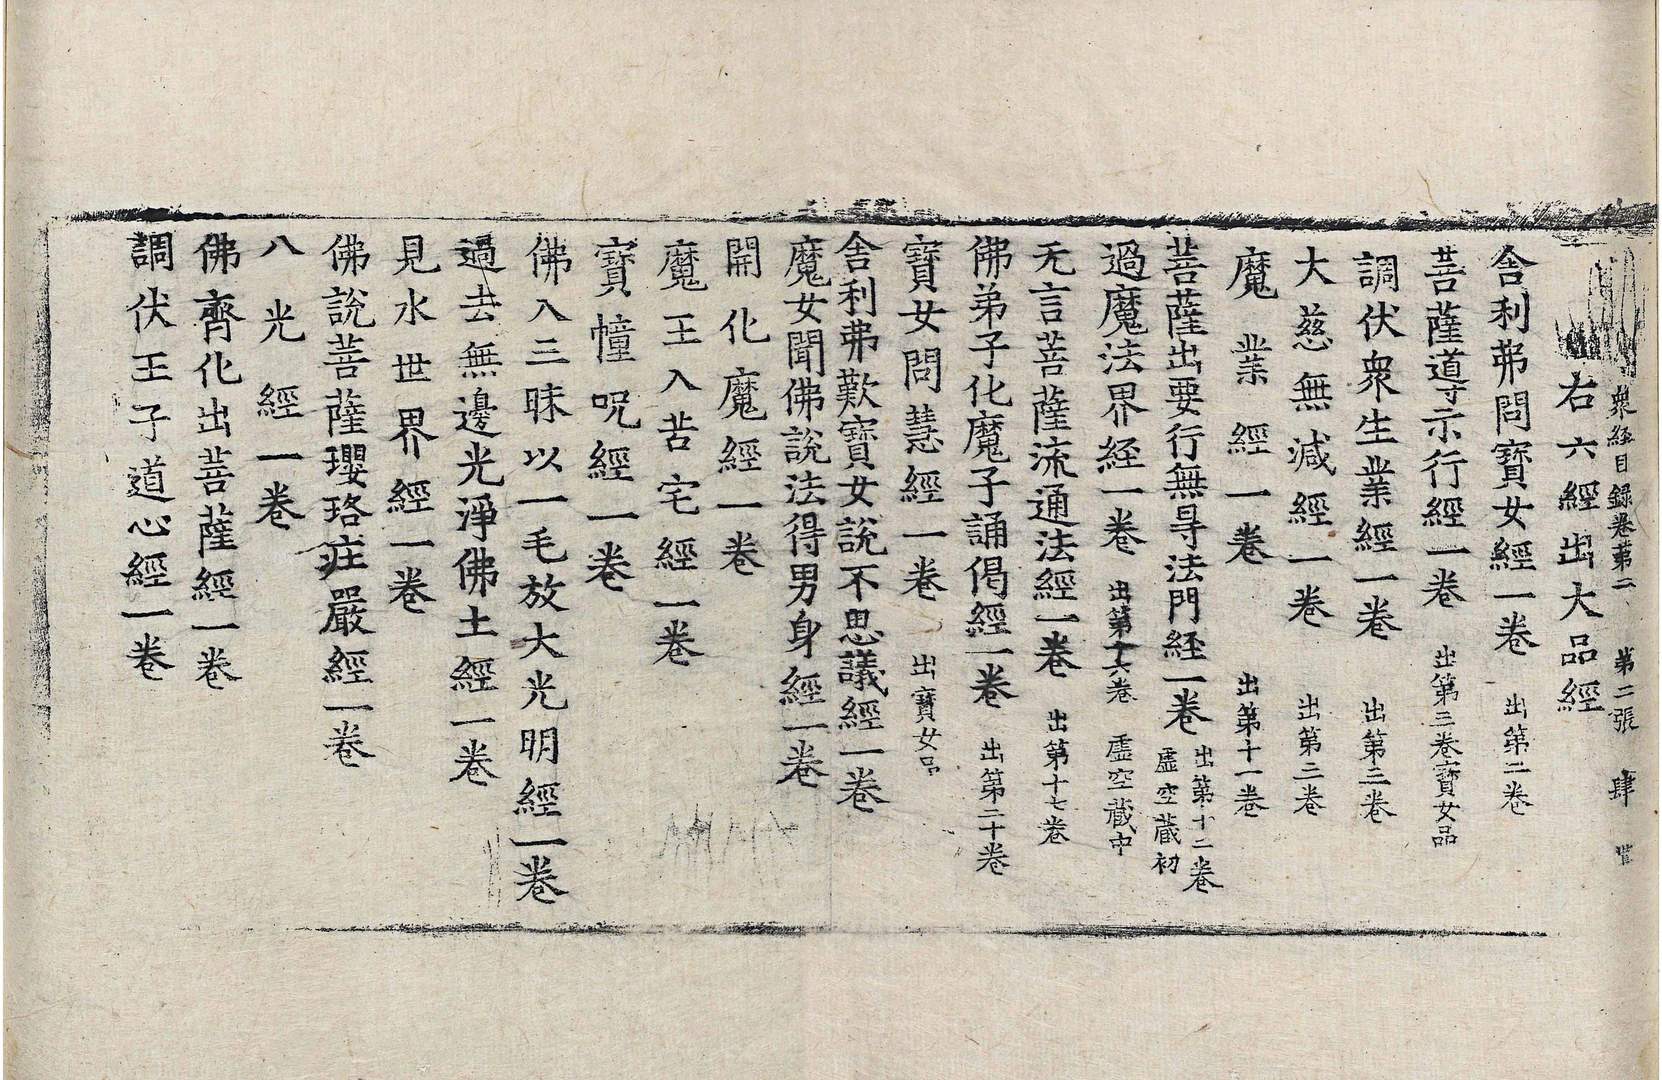 衆経目録卷第二 第二張 肆
右六經出大品經
舎利弗問寶女經一卷 出第二卷
菩薩道示行經一卷 出第三卷寶女品
調伏衆生業經一卷 出第三卷
大慈無減經一卷 出第三卷
魔業經一卷 出第十一卷
菩薩出要行無㝵法門経一卷 出第十二卷虛空蔵初
過魔法界経一卷 出第十六卷虛空蔵中
无言菩薩流通法經一卷 出第十七卷
佛弟子化魔子誦偈經一卷 出第二十卷
寶女問慧經一卷 出寶女品
舎利弗歎寶女說不思議經一卷
魔女聞佛說法得男身經一卷
開化魔經一卷
魔王入苦宅經一卷
寶幢呪經一卷
佛入三昧以一毛放大光明經一卷
過去無邊光淨佛土經一卷
見水世界經一卷
佛說菩薩瓔珞莊嚴經一卷
八光經一卷
佛齊化出菩薩經一卷
調伏王子道心經一卷